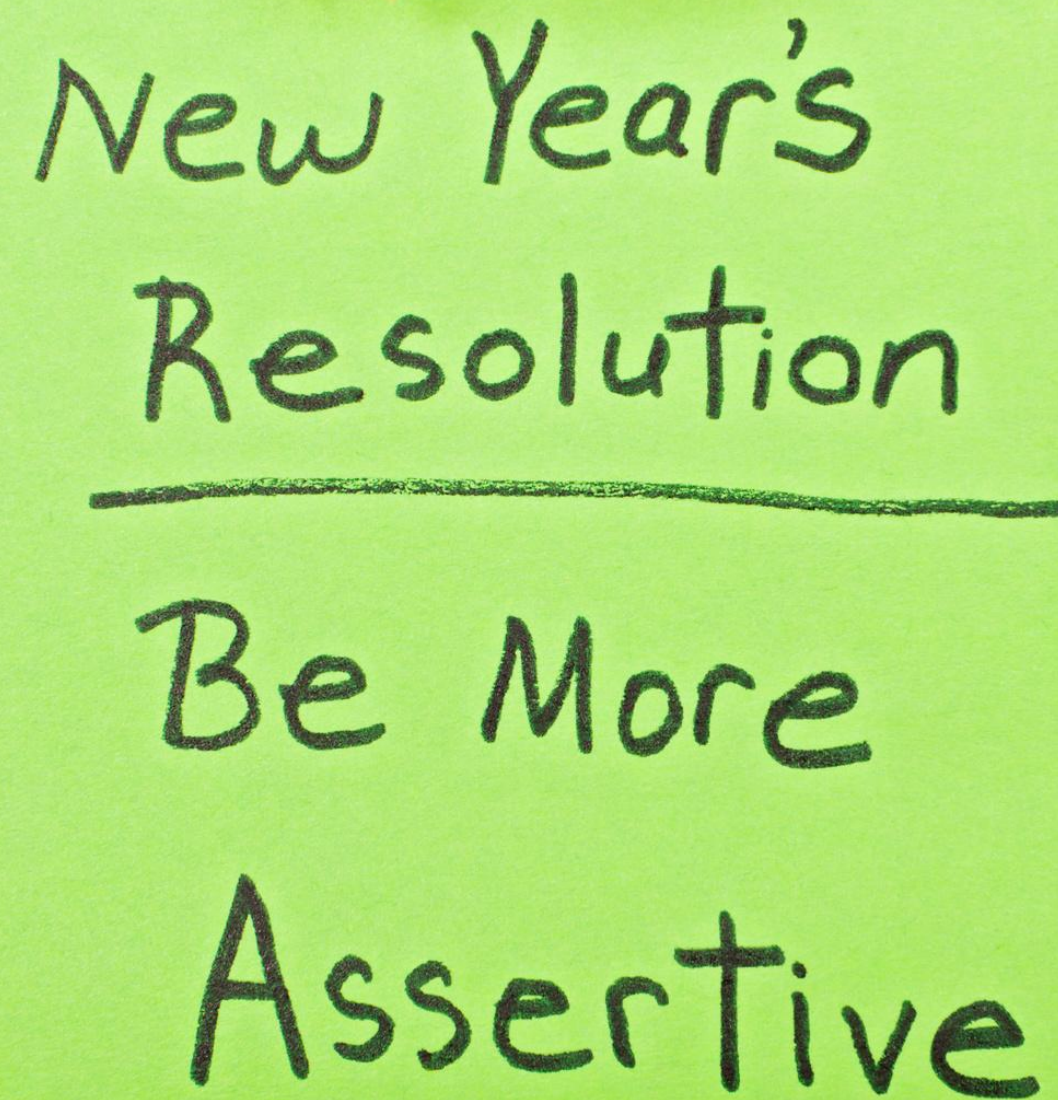 New Year's
Resolution
Be More
Assertive